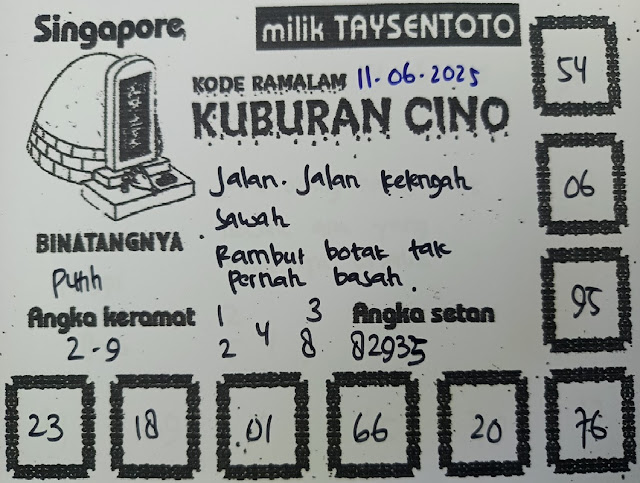 Singapore
milik TAYSENTOTO
54
KODE RAMALAM 11.06.2025
KUBURAN CINO
Jalan. Jalan ketengah
sawah
06
BINATANGNYA
Rambut botak tak
Putih
pernah basah.
95
Angka keramat
1 3
Angka setan
2-9
2 4 8
82935
23 18 01 66 20 76